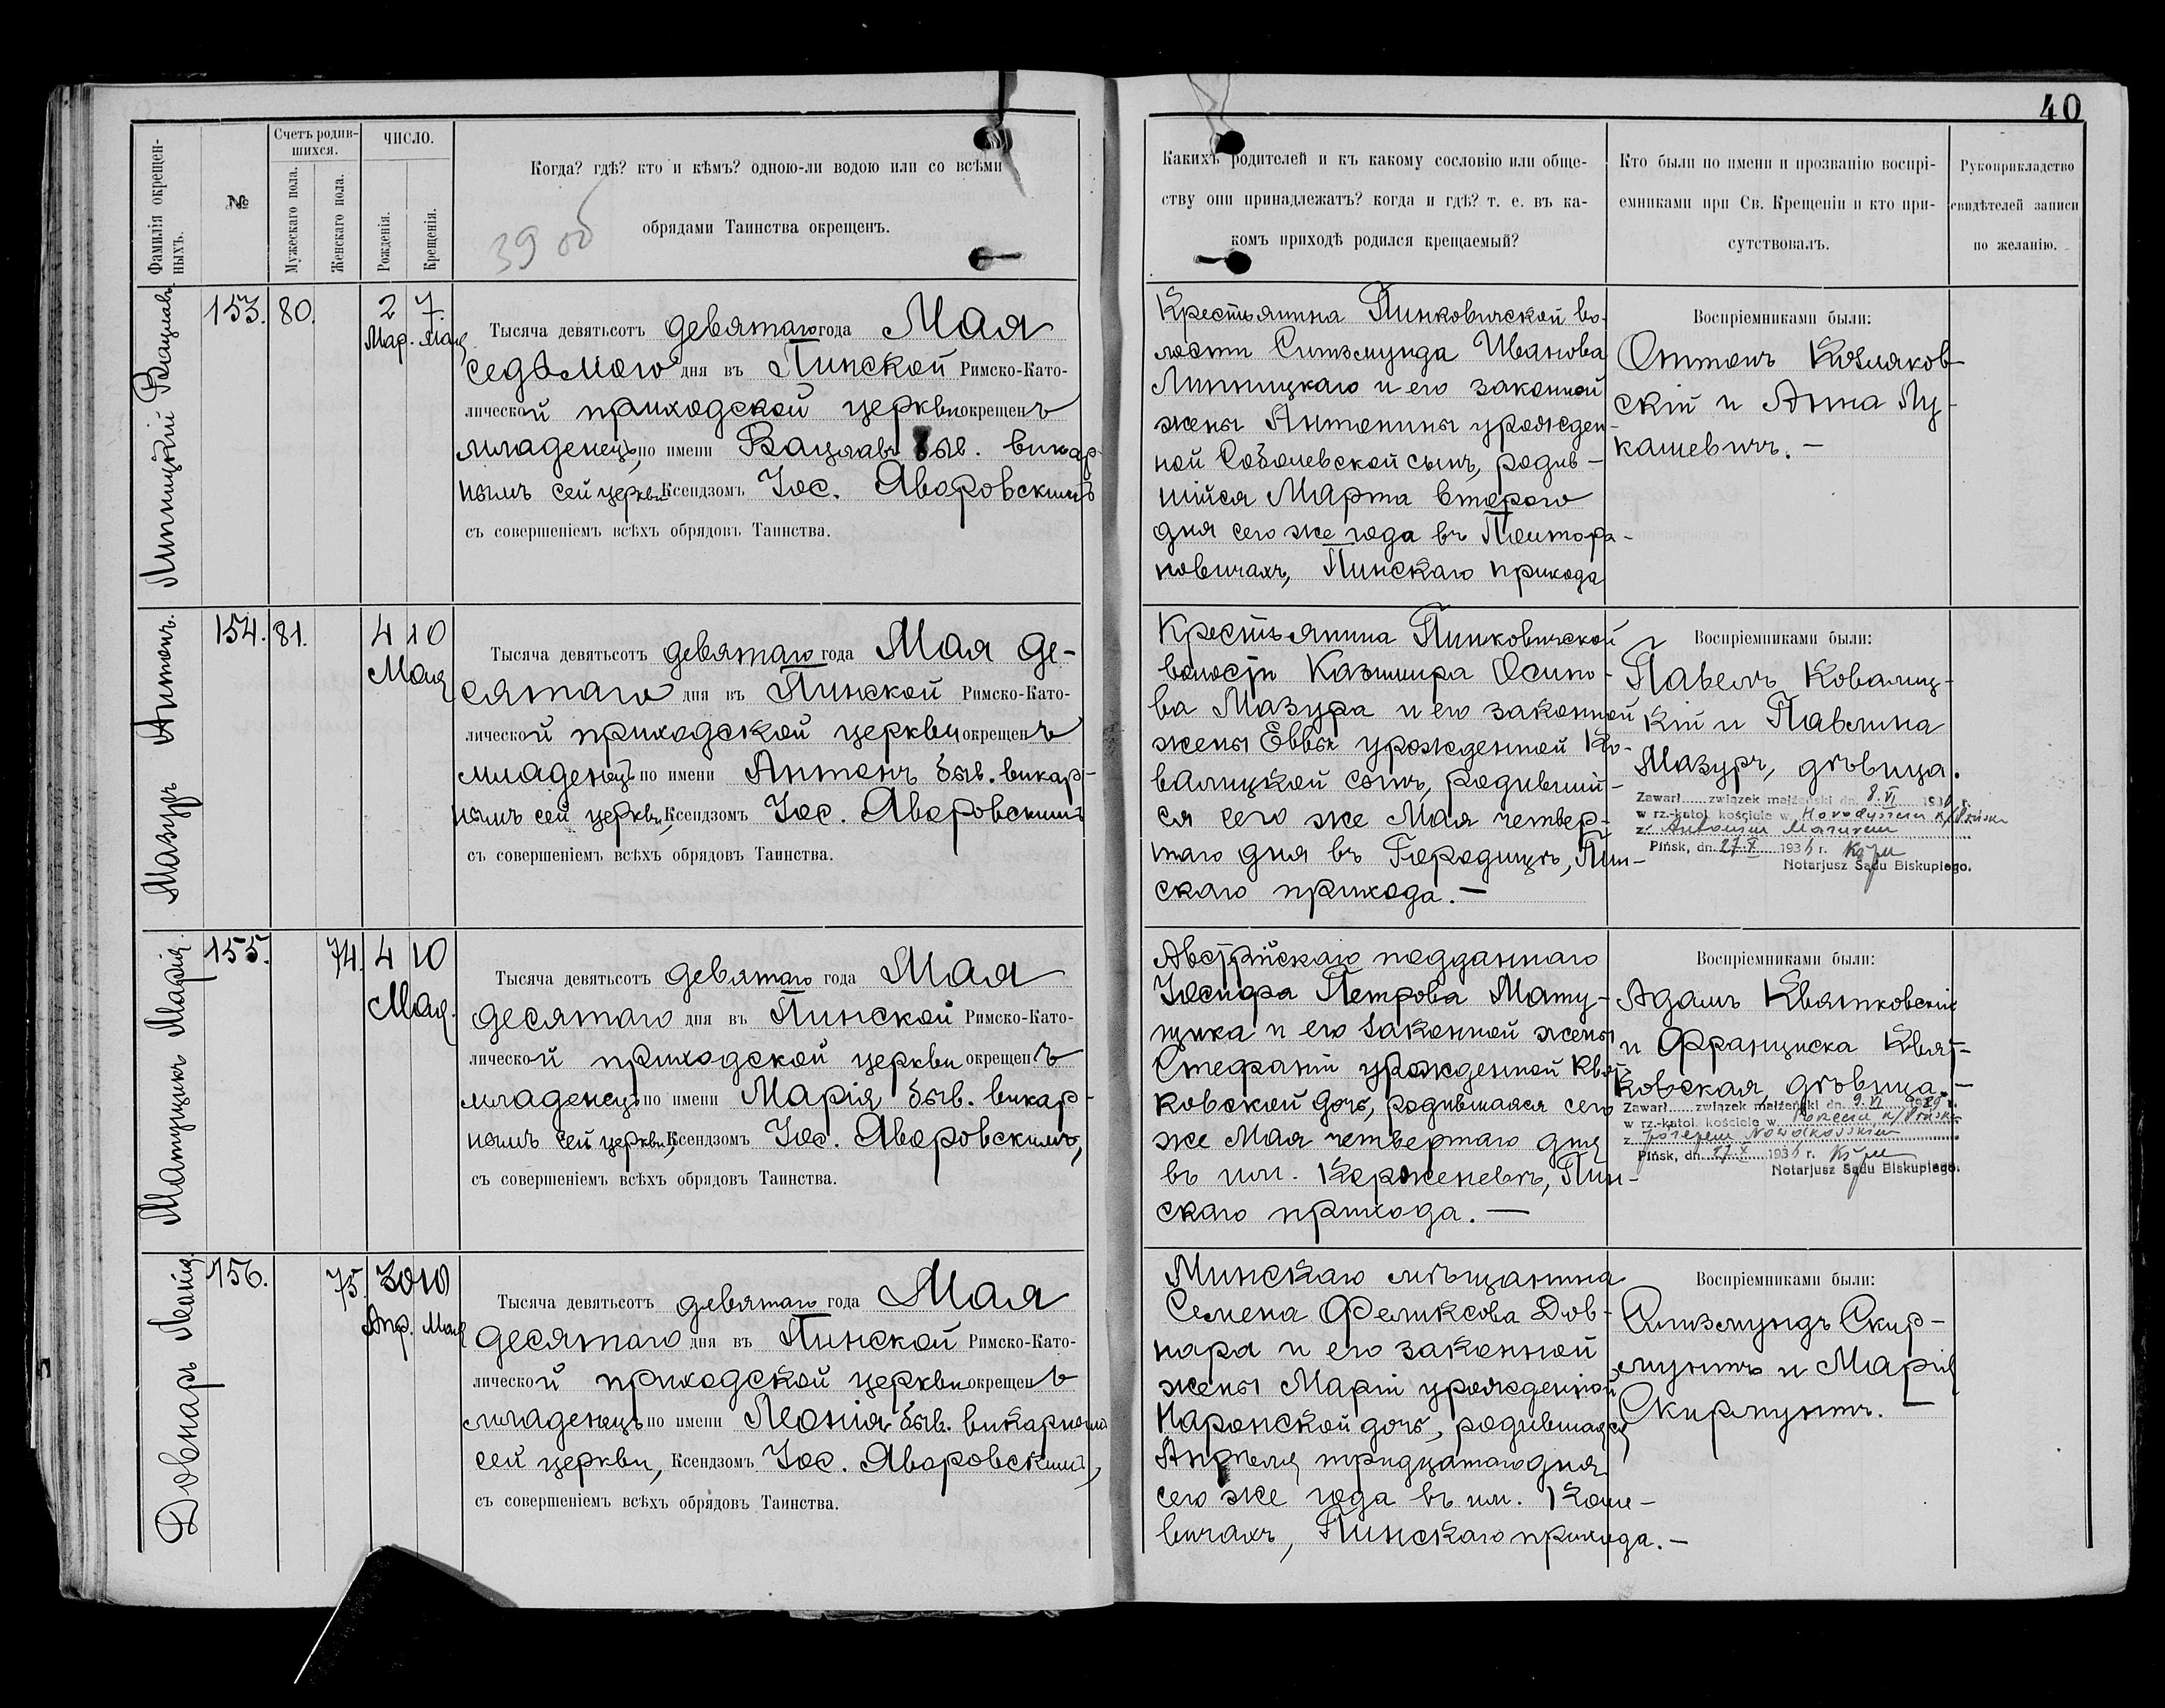 40
Фамилія окрещен-
ныхъ.
№
Счетъ родив-
шихся.
Мужескаго пола.
Женскаго пола.
ЧИСЛО.
Рожденія.
Крещенія.
Когда? гдѣ? кто и кѣмъ? одною-ли водою или со всѣми
обрядами Таинства окрещенъ.
39 об
Какихъ родителей и къ какому сословію или обще-
ству они принадлежатъ? когда и гдѣ? т. е. въ ка-
комъ приходѣ родился крещаемый?
Кто были по имени и прозванію воспрі-
емниками при Св. Крещеніи и кто при-
сутствовалъ.
Рукоприкладство
свидѣтелей записи
по желанію.
Липницкій Вацлавъ
153. 80.
2 7
Мар. Мая
Тысяча девятьсотъ девятаго года Мая
седьмого дня въ Пинской Римско-Като-
лической приходской церкви окрещенъ
младенецъ по имени Вацлавъ быв. викар-
нымъ сей церкви Ксендзомъ Іос. Яворовскимъ
съ совершеніемъ всѣхъ обрядовъ Таинства.
Крестьянина Пинковичской во-
лости Сигизмунда Иванова
Липницкаго и его законной
жены Антонины урожден-
ной Соболевской сынъ, родив-
шійся Марта второго
дня сего же года въ
новичахъ, Пинскаго прихода
Воспріемниками были:
Оттонъ Козляков-
скій и Анна Лу-
кашевичъ. —
Мазуръ Антонъ.
154. 81.
4 10
Мая
Тысяча девятьсотъ девятаго года Мая де-
сятаго дня въ Пинской Римско-Като-
лической приходской церкви окрещенъ
младенецъ по имени Антонъ быв. викар-
нымъ сей церкви, Ксендзомъ Іос. Яворовскимъ
съ совершеніемъ всѣхъ обрядовъ Таинства.
Крестьянина Пинковичской
волости Казимира Осипо-
ва Мазура и его законной
жены Еввы урожденной Ко-
валицкой сынъ, родивший-
ся сего же Мая четвер-
таго дня въ Городищѣ, Пин-
скаго прихода. —
Воспріемниками были:
Павелъ Ковалиц-
кій и Павлина
Мазуръ, дѣвица.
Zawarł...... związek małżeński dn. 8.VI 193 r.
w rz.-katol. kościele w Horodyszczu k/Pińska
z Antoniną Mazurem
Pińsk, dn. 27.X 193 r.
Notarjusz Sądu Biskupiego.
Матущикъ Марія.
155. 74.
4 10
Мая.
Тысяча девятьсотъ девятаго года Мая
десятаго дня въ Пинской Римско-Като-
лической приходской церкви окрещенъ
младенецъ по имени Марія быв. викар-
нымъ сей церкви, Ксендзомъ Іос. Яворовскимъ,
съ совершеніемъ всѣхъ обрядовъ Таинства.
Австрійскаго подданнаго
Іосифа Петрова Мату-
щика и его законной жены
Стефаніи урожденной Квят-
ковской дочь, родившаяся сего
же Мая четвертаго дня
въ им. Корженевѣ, Пин-
скаго прихода. —
Воспріемниками были:
Адамъ Квятковскій
и Франциска Квят-
ковская, дѣвица. —
Zawarł...... związek małżeński dn. 9.VI 1929 r.
w rz.-katol. kościele w Porzeczu k/Pińska
z Józefem
Pińsk, dn. 27.X 193 r.
Notarjusz Sądu Biskupiego.
Довнаръ Леонія.
156. 75.
30 10
Апр. Мая
Тысяча девятьсотъ девятаго года Мая
десятаго дня въ Пинской Римско-Като-
лической приходской церкви окрещенъ
младенецъ по имени Леонія быв. викарнымъ
сей церкви, Ксендзомъ Іос. Яворовскимъ,
съ совершеніемъ всѣхъ обрядовъ Таинства.
Минскаго мѣщанина
Семена Феликсова Дов-
нара и его законной
жены Маріи урожденной
Наронской дочь, родившаяся
Апрѣля тридцатаго дня
сего же года въ им. Коше-
вичахъ, Пинскаго прихода. —
Воспріемниками были:
Сигизмундъ Скир-
мунтъ и Марія
Скирмунтъ. —